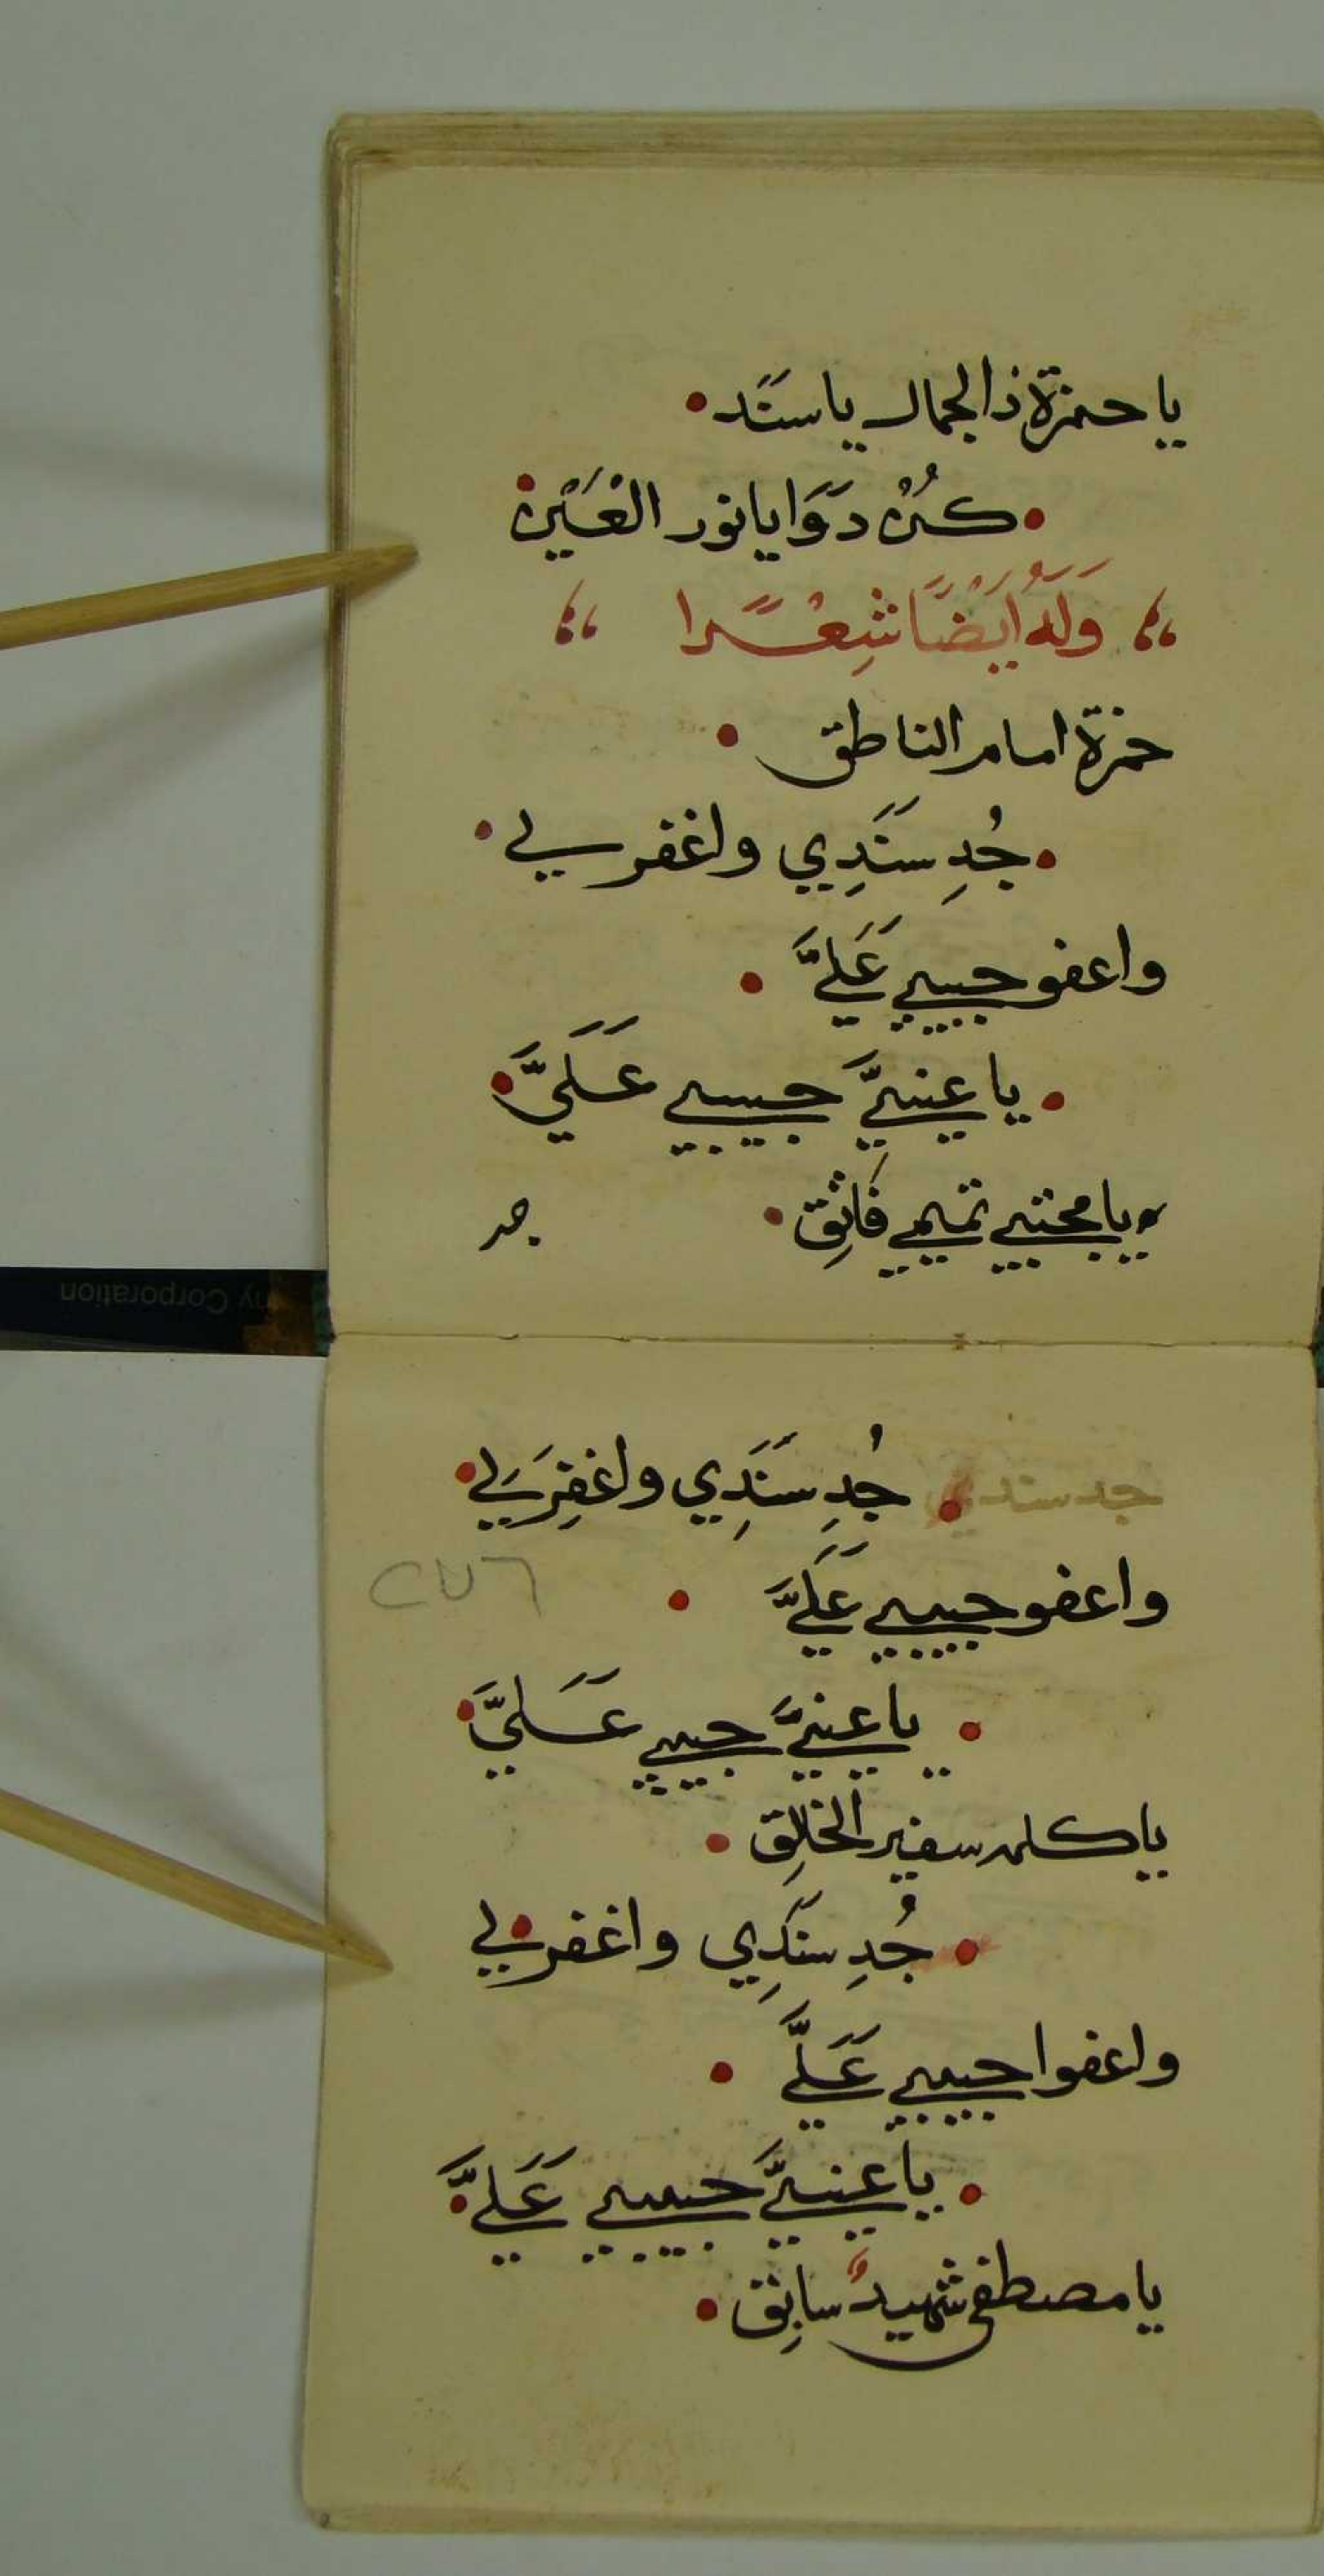 يا حمزة ذالجمال يا سَنَد •
• كُنْ دَوَا يا نور العَيْن •
؛؛ وَلَهُ اَيْضًا شِعْرًا ؛؛
حمزة امام الناطق •
• جُدِ سَنَدِي واغفر لي •
واعفو حبيبي عَلَيَّ •
• يا عينيَّ حبيبي عَلَيَّ •
ويا مجتبى تميمي فَاثِق •
جد
جد سندي • جُدِ سَنَدِي واغفِرَ لي •
واعفو حبيبي عَلَيَّ •
٢٧٦
• يا عينيَّ حبيبي عَلَيَّ •
يا كلمه سفير الخالِق •
• جُدِ سَنَدِي واغفر لي •
واعفوا حبيبي عَلَيَّ •
• يا عينيَّ حبيبي عَلَيَّ •
يا مصطفى شهيدٌ سابِق •
ny Corporation